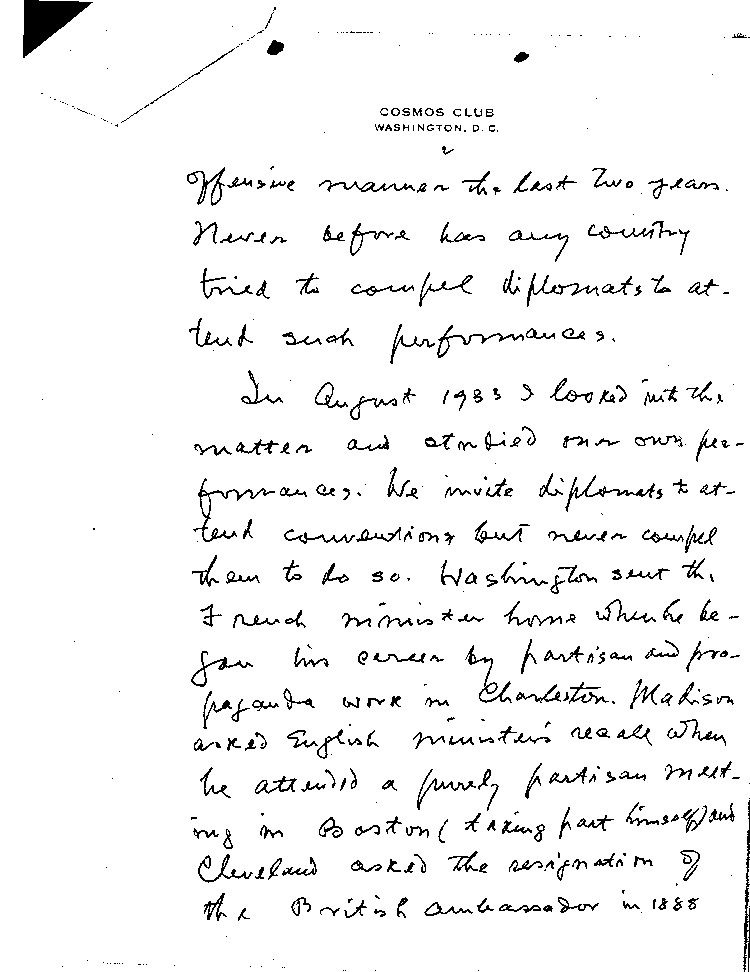 COSMOS CLUB
WASHINGTON, D. C.
2
offensive manner the last two years.
Never before has any country
tried to compel diplomats to at-
tend such performances.
In August 1933 I looked into the
matter and studied our own per-
formances. We invite diplomats to at-
tend conventions but never compel
them to do so. Washington sent the
French minister home when he be-
gan his career by partisan and pro-
paganda work in Charleston. Madison
asked English minister's recall when
he attended a purely partisan meet-
ing in Boston (taking part himself) and
Cleveland asked the resignation of
the British ambassador in 1888